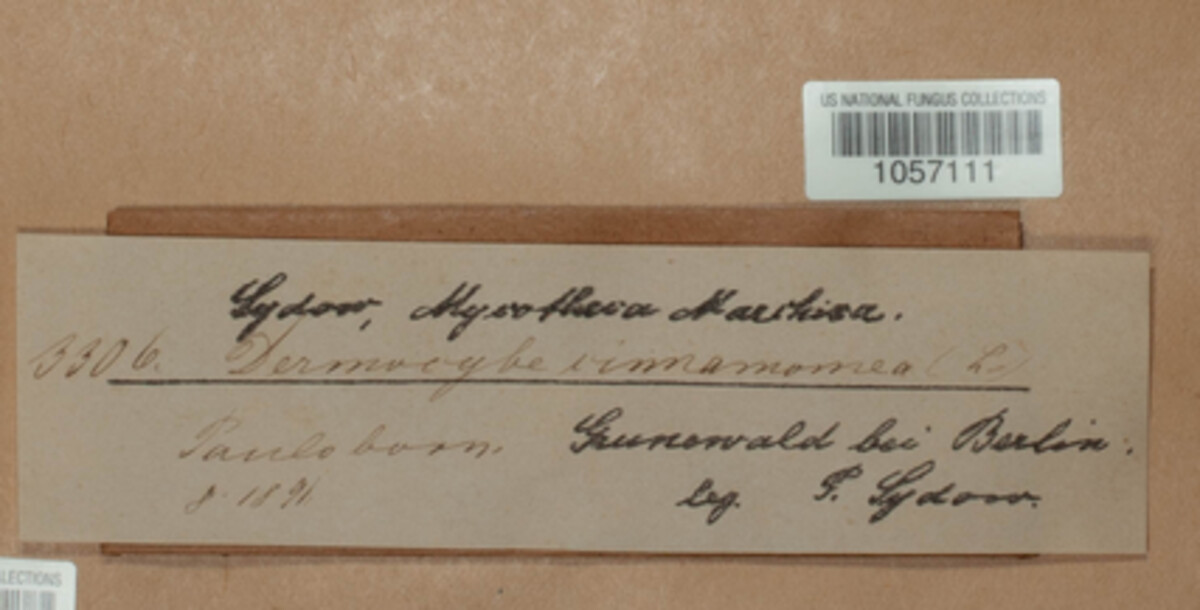 US NATIONAL FUNGUS COLLECTIONS
1057111
Sydow, Mycotheca Marchica.
3306. Dermocybe cinnamomea (L.)
Paulsborn. Grunewald bei Berlin.
8. 1891 leg. P. Sydow.
LECTIONS